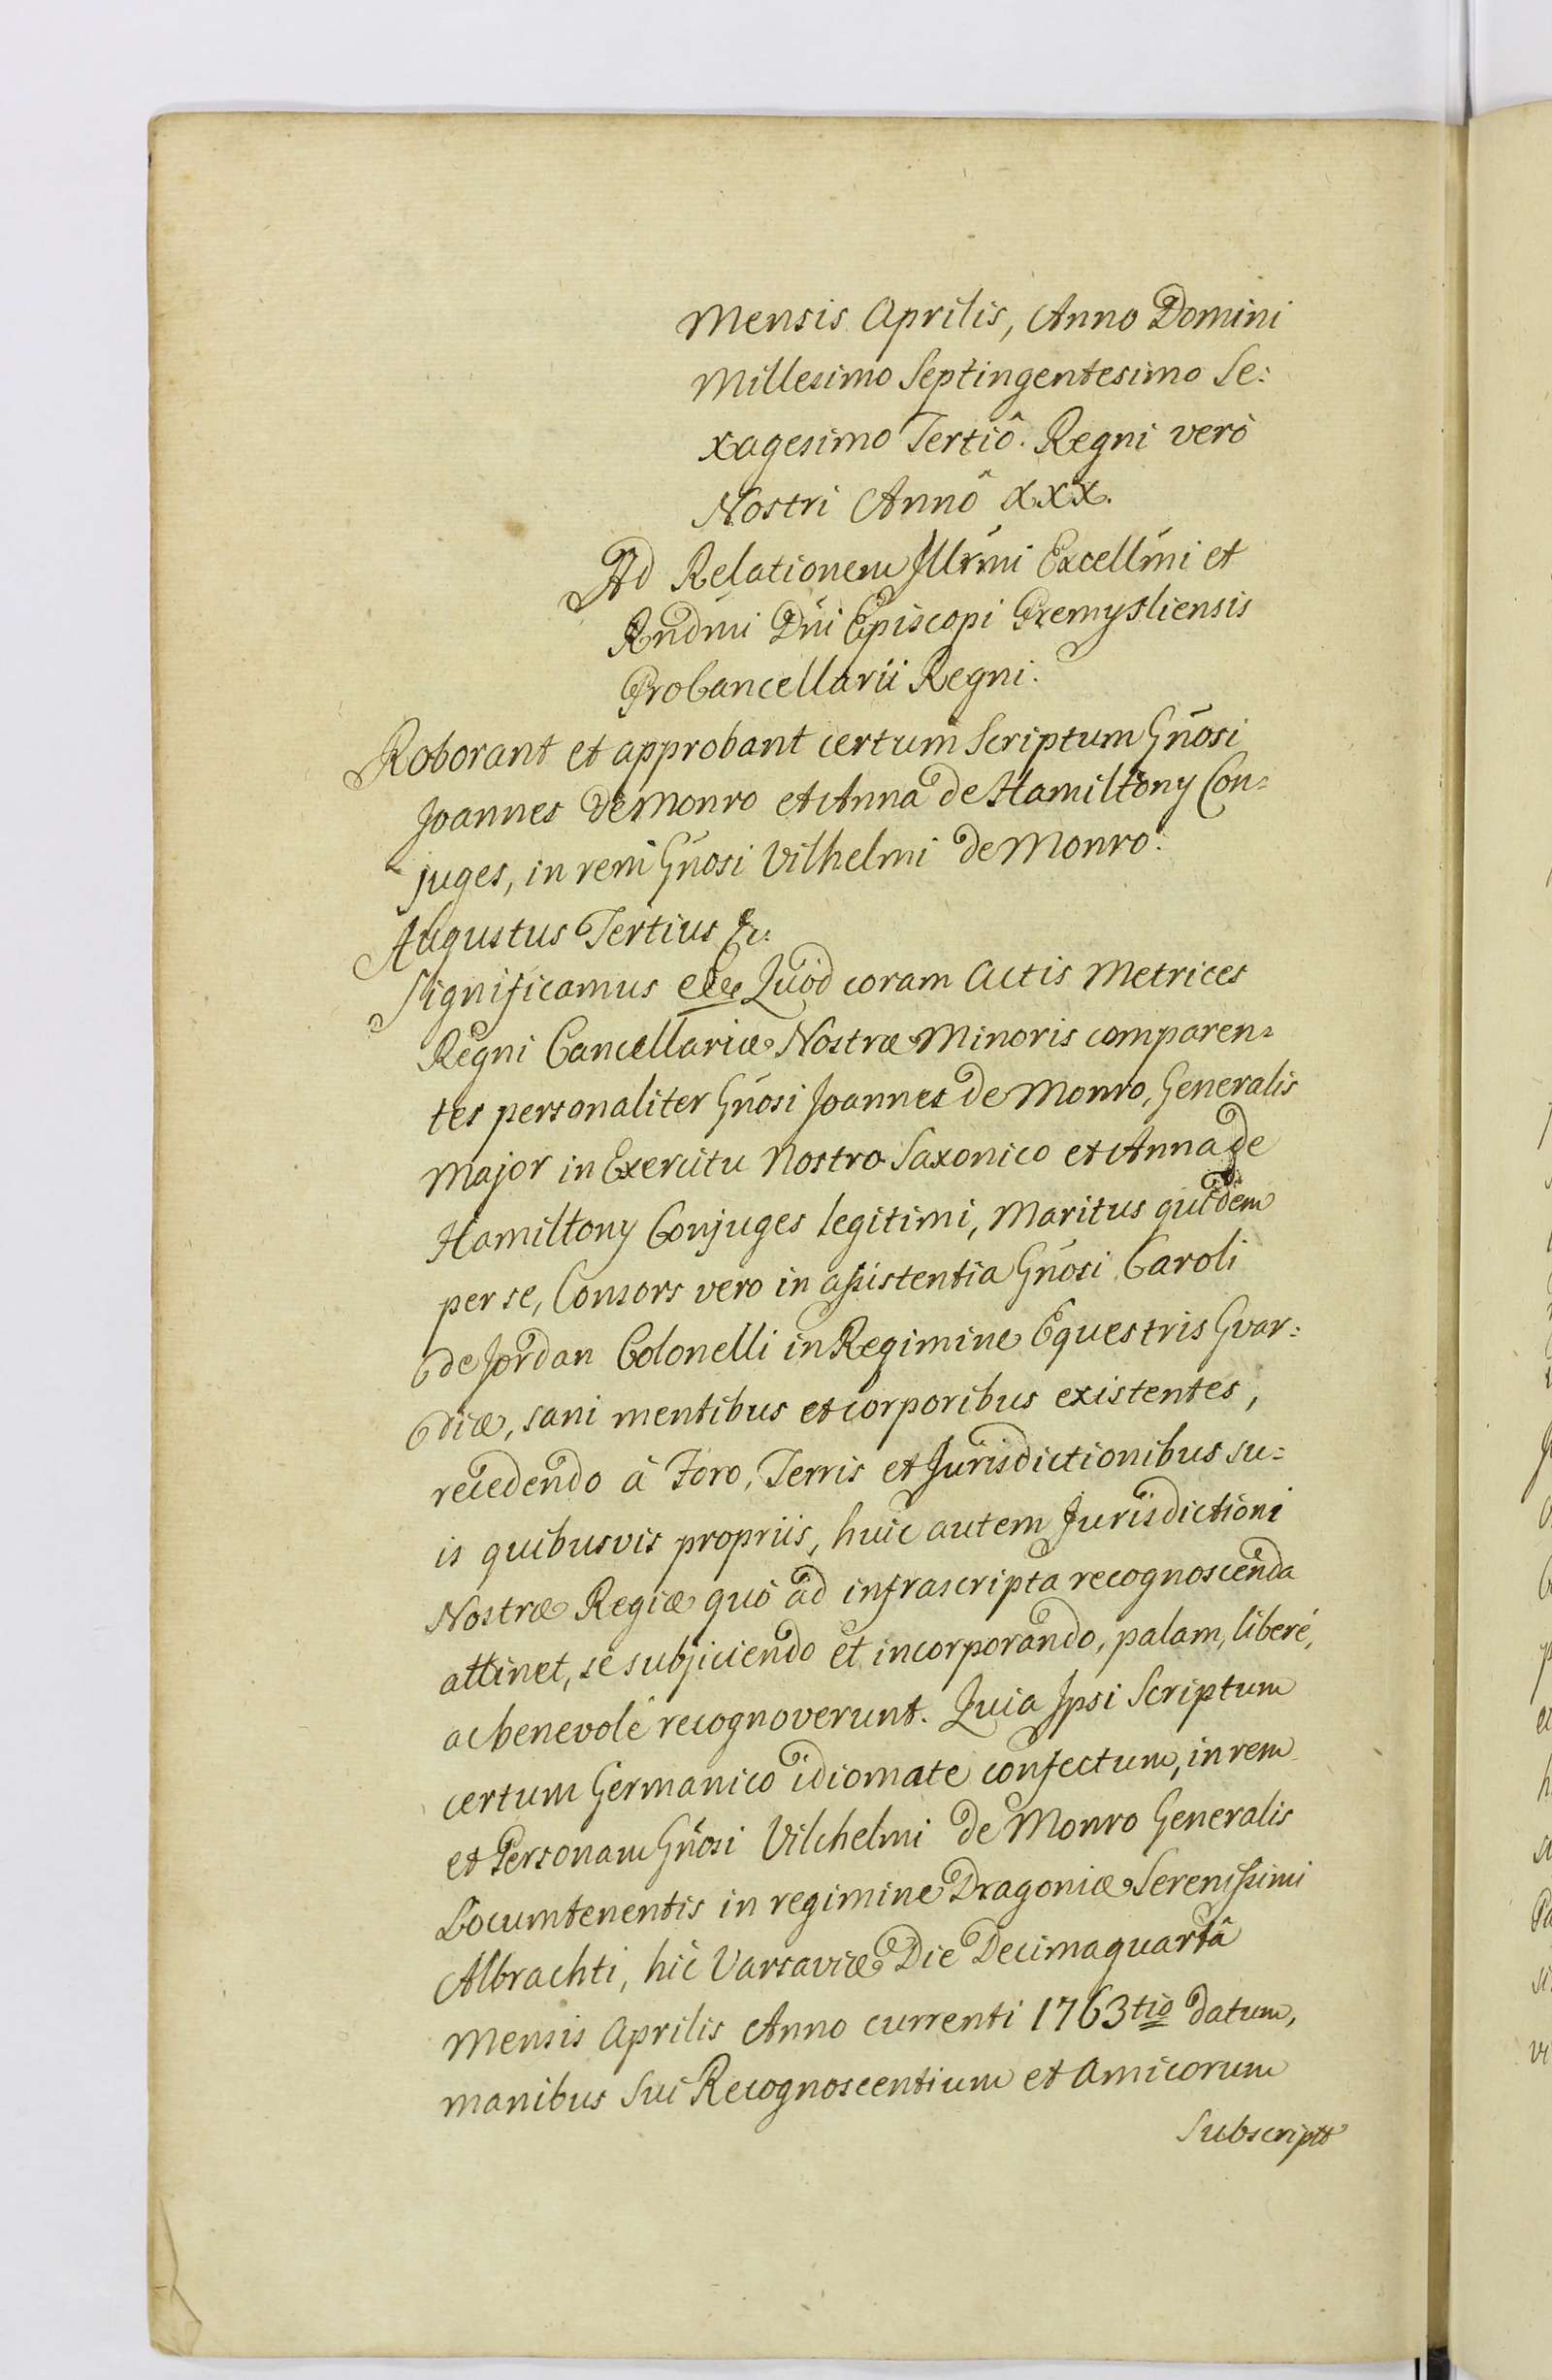 Mensis Aprilis, Anno Domini
Millesimo Septingentesimo Se:
xagesimo Tertiô. Regni verò
Nostri Annô XXX.
Ad Relationem Illrm̃i Excellm̃i et
Rnd̃mi Dn̄i Episcopi Premysliensis
ProCancellarii Regni.
Roborant et approbant certum Scriptum Gn̄osi
Joannes de Monro et Anna de Hamiltony Con=
juges, in rem Gn̄osi Vilhelmi de Monro.
Augustus Tertius &c:
Significamus &&& Quod coram Actis Metrices
Regni Cancellariæ Nostræ Minoris comparen=
tes personaliter Gn̄osi Joannes de Monro, Generalis
Major in Exercitu Nostro Saxonico et Anna de
Hamiltony Conjuges legitimi, Maritus quidem
per se, Consors vero in assistentia Gn̄osi Caroli
de Jordan Colonelli in Regimine Equestris Gvar:
diæ, sani mentibus et corporibus existentes,
recedendo à Foro, Terris et Jurisdictionibus su=
is quibusvis propriis, huic autem Jurisdictioni
Nostræ Regiæ quò ad infrascripta recognoscenda
attinet, se subjiciendo et incorporando, palam, liberé,
ac benevolé recognoverunt. Quia Ipsi Scriptum
certum Germanico idiomate confectum, in rem
et Personam Gn̄osi Vilchelmi de Monro Generalis
Locumtenentis in regimine Dragoniæ Serenissimi
Albrachti, hîc Varsaviæ Die Decimaquartâ
Mensis Aprilis Anno currenti 1763tio datum,
manibus Sui Recognoscentium et Amicorum
Subscript